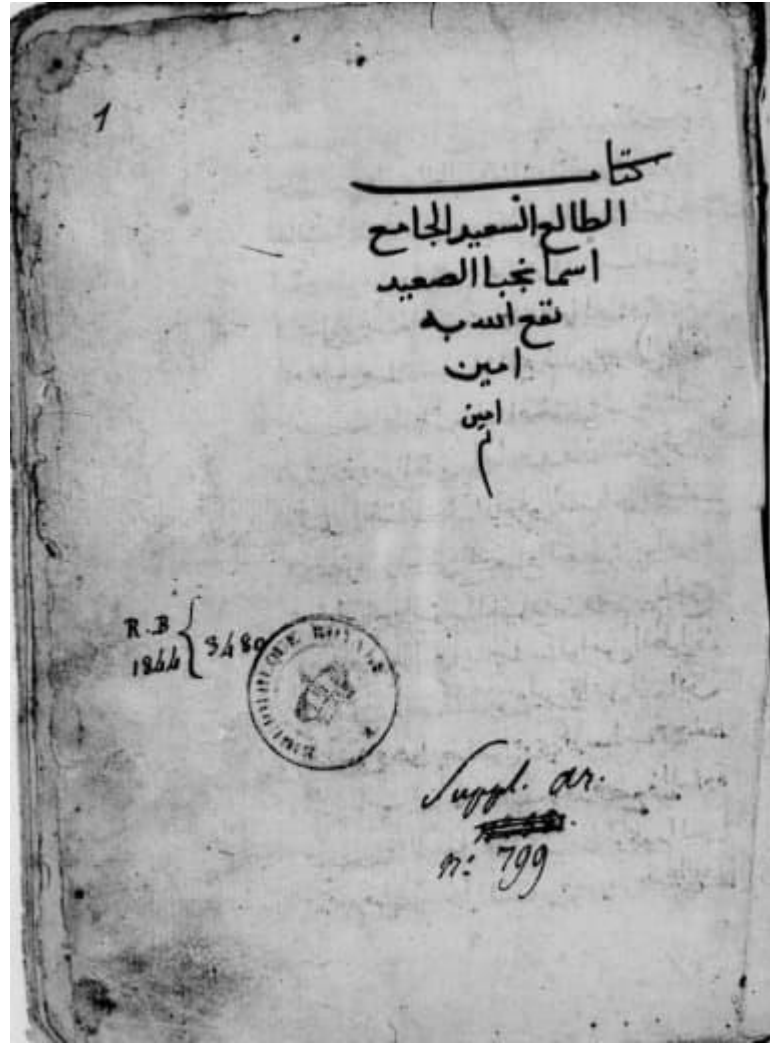 1
كتاب
الطالع السعيد الجامع
اسما نجبا الصعيد
نفع الله به
امين
امين
R.B
1844 } 3480
BIBLIOTHÈQUE ROYALE
Suppl. ar.
n: 799